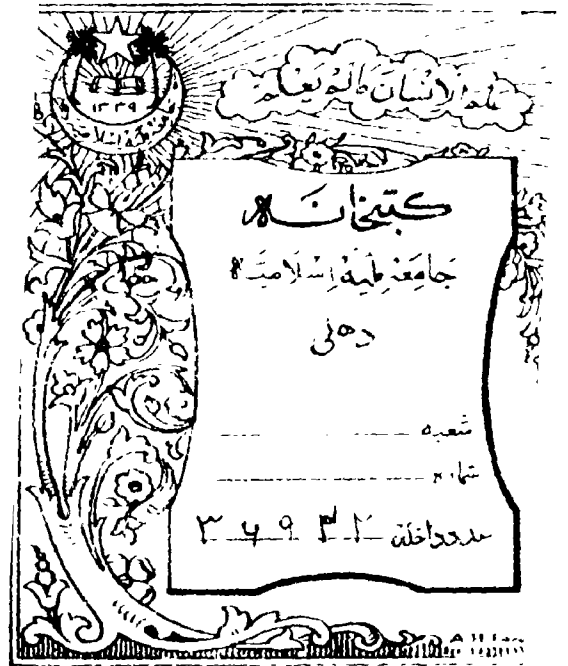 علم الانسان مالم یعلم
کتبخانہ
جامعہ ملیہ اسلامیہ
دھلی
شعبہ
شمارہ
عدد داخلہ